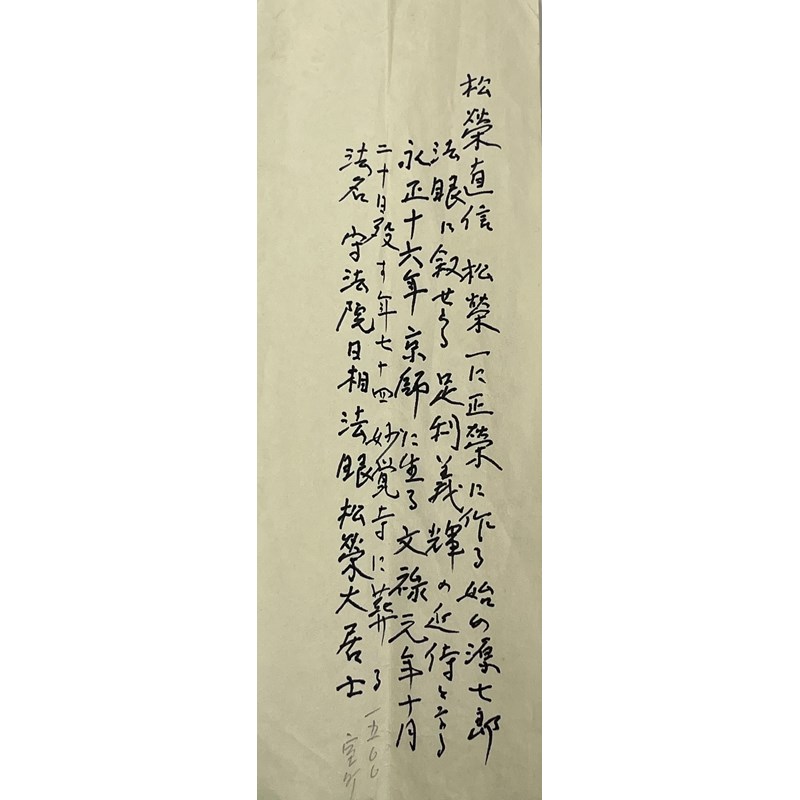 松榮直信 松榮一に正榮に作る 始め源七郎
法眼に叙せらる 足利義輝の近侍となる
永正十六年京師に生る 文禄元年十月
二十日歿す年七十四 妙覚寺に葬る
法名 守法院日相法眼松榮大居士
一五
室町